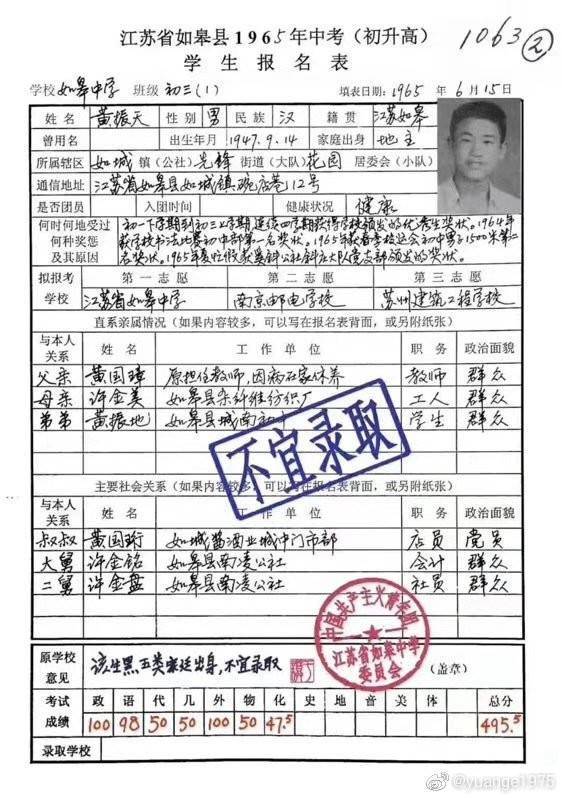 江苏省如皋县1965年中考（初升高） 1063②
学生报名表
学校 如皋中学 班级 初三(1) 填表日期：1965年6月15日
姓名 黄振天 性别 男 民族 汉 籍贯 江苏如皋
曾用名 出生年月 1947.9.14 家庭出身 地主
所属辖区 如城镇(公社)先锋街道(大队)花园居委会(小队)
通信地址 江苏省如皋县如城镇碗店巷12号
是否团员 入团时间 健康状况 健康
何时何地受过何种奖惩及其原因
初一下学期到初三上学期连续四学期获得学校颁发的优秀生奖状。1964年
获学校书法比赛初中部第一名奖状。1965年获春季校运会初中男子1500米第二
名奖状。1965年夏忙假获娄斜公社斜庄大队党支部颁发的奖状。
拟报考学校 第一志愿 第二志愿 第三志愿
江苏省如皋中学 南京邮电学校 苏州建筑工程学校
直系亲属情况（如果内容较多，可以写在报名表背面，或另附纸张）
与本人关系 姓名 工作单位 职务 政治面貌
父亲 黄国璋 原担任教师，因病在家休养 教师 群众
母亲 许金美 如皋县杂纤维纺织厂 工人 群众
弟弟 黄振地 如皋县城南初中 学生 群众
不宜录取
主要社会关系（如果内容较多，可以写在报名表背面，或另附纸张）
与本人关系 姓名 工作单位 职务 政治面貌
叔叔 黄国珩 如城酱酒业城中门市部 店员 党员
大舅 许金铭 如皋县南凌公社 会计 群众
二舅 许金盘 如皋县南凌公社 社员 群众
中国共产主义青年团
江苏省如皋中学
委员会
原学校意见 该生黑五类家庭出身，不宜录取 (盖章)
考试成绩 政 语 代 几 外 物 化 史 地 音 美 体 总分
100 98 50 50 100 50 47.5 495.5
录取学校
@yuange1975